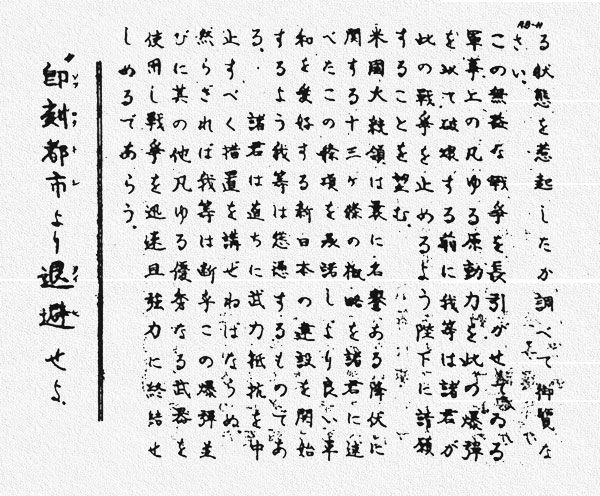 AB-11
る状態を惹起したか調べて御覧な
さい。
この無益な戦争を長引かせてゐる
軍事上の凡ゆる原動力を此の爆弾
を以て破壊する前に我等は諸君が
此の戦争を止めるよう陛下に請願
することを望む。
米國大統領は曩に名譽ある降伏に
関する十三ヶ條の概略を諸君に述
べたこの條項を承諾しより良い平
和を愛好する新日本の建設を開始
するよう我等は慫慂するものであ
る。諸君は直ちに武力抵抗を中
止すべく措置を講ぜねばならぬ。
然らざれば我等は断乎この爆弾並
びに其の他凡ゆる優秀なる武器を
使用し戦争を迅速且強力に終結せ
しめるであらう。
即刻都市より退避せよ。